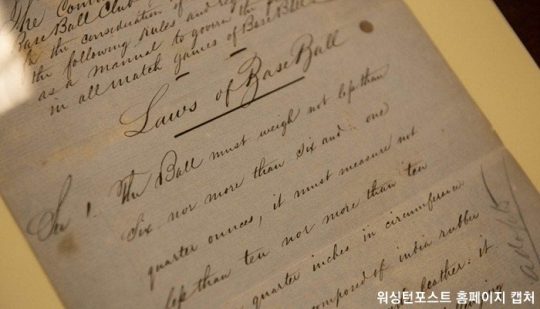 The Con
Base Ball Club
the consideration of
the following Rules and reg
as a manual to govern the
in all match games of Base Ball
Laws of Base Ball
Sec 1. The Ball must weigh not less than
Six nor more than Six and one
quarter ounces, it must measure not
less than ten nor more than ten
quarter inches in circumference
composed of india rubber
leather: it
adopted
워싱턴포스트 홈페이지 캡처